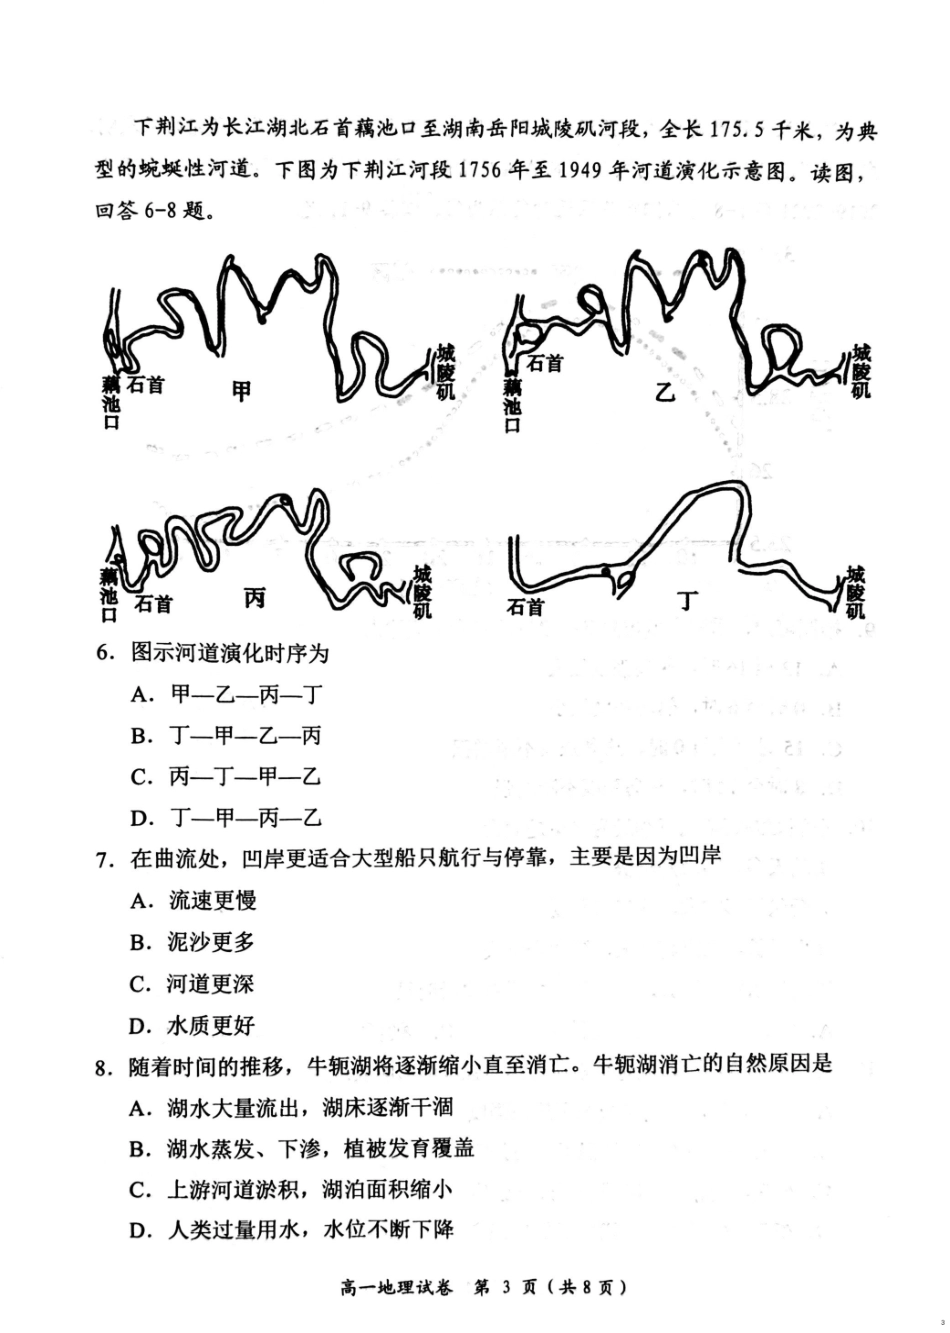 下荆江为长江湖北石首藕池口至湖南岳阳城陵矶河段，全长 175.5 千米，为典
型的蜿蜒性河道。下图为下荆江河段 1756 年至 1949 年河道演化示意图。读图，
回答 6-8 题。
藕池口
石首
甲
城陵矶
藕池口
石首
乙
城陵矶
藕池口
石首
丙
城陵矶
石首
丁
城陵矶
6．图示河道演化时序为
A．甲—乙—丙—丁
B．丁—甲—乙—丙
C．丙—丁—甲—乙
D．丁—甲—丙—乙
7．在曲流处，凹岸更适合大型船只航行与停靠，主要是因为凹岸
A．流速更慢
B．泥沙更多
C．河道更深
D．水质更好
8．随着时间的推移，牛轭湖将逐渐缩小直至消亡。牛轭湖消亡的自然原因是
A．湖水大量流出，湖床逐渐干涸
B．湖水蒸发、下渗，植被发育覆盖
C．上游河道淤积，湖泊面积缩小
D．人类过量用水，水位不断下降
高一地理试卷 第 3 页（共 8 页）
3